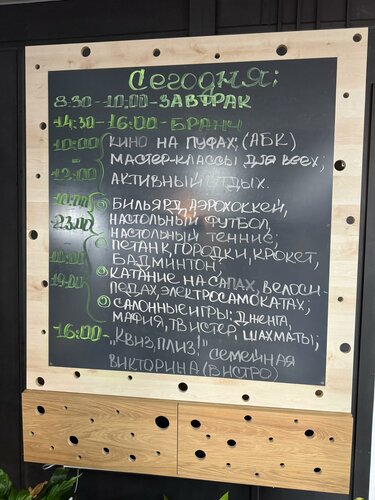 Сегодня:
8:30-10:00-ЗАВТРАК
14:30-16:00-БРАНЧ
10:00 КИНО НА ПУФАХ; (АБК)
- МАСТЕР-КЛАССЫ ДЛЯ ВСЕХ;
12:00 АКТИВНЫЙ ОТДЫХ.
БИЛЬЯРД, АЭРОХОККЕЙ,
23:00 НАСТОЛЬНЫЙ ФУТБОЛ,
НАСТОЛЬНЫЙ ТЕННИС;
ПЕТАНК, ГОРОДКИ, КРОКЕТ,
БАДМИНТОН;
КАТАНИЕ НА САПАХ, ВЕЛОСИ-
19:00 ПЕДАХ, ЭЛЕКТРОСАМОКАТАХ;
САЛОННЫЕ ИГРЫ: ДЖЕНГА,
МАФИЯ, ТВИСТЕР, ШАХМАТЫ;
16:00-„КВИЗ, ПЛИЗ!" СЕМЕЙНАЯ
ВИКТОРИНА (БИСТРО)